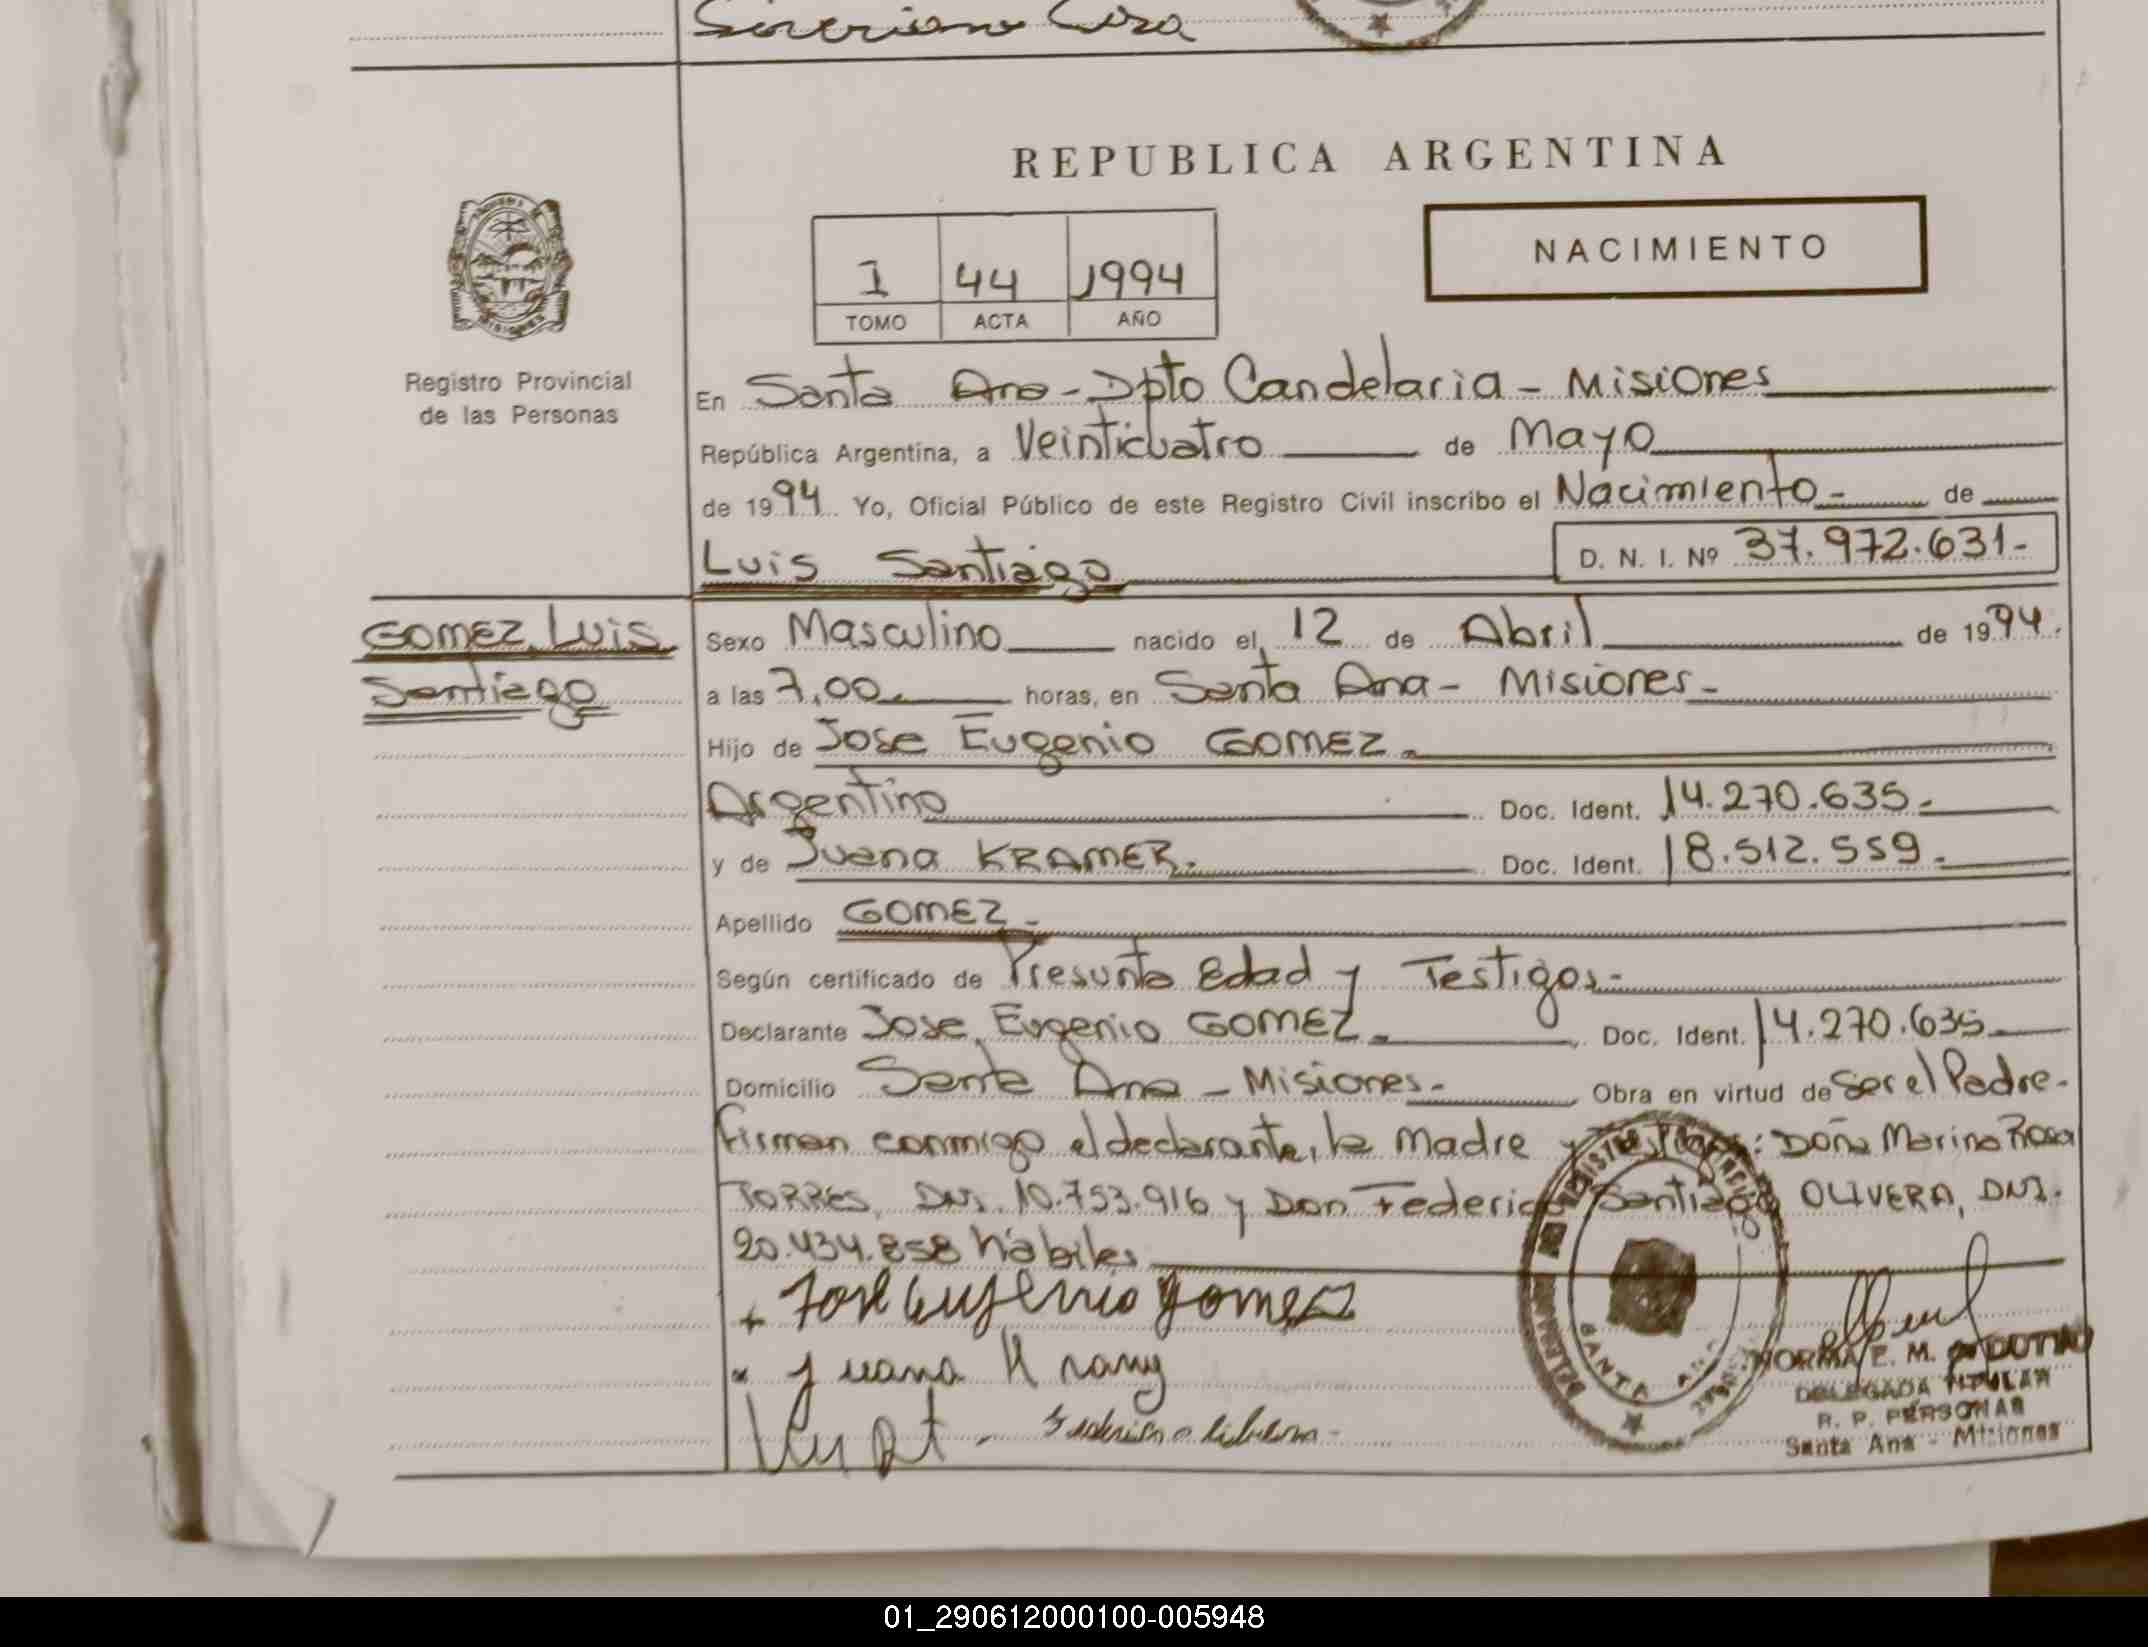 REPUBLICA ARGENTINA
NACIMIENTO
I 44 1994
TOMO ACTA AÑO
Registro Provincial
de las Personas
En Santa Ana - Dpto Candelaria - Misiones
República Argentina, a Veinticuatro de Mayo
de 1994 Yo, Oficial Público de este Registro Civil inscribo el Nacimiento - de
Luis Santiago D. N. I. Nº 37.972.631-
GOMEZ, Luis
Santiago
Sexo Masculino nacido el 12 de Abril de 1994.
a las 7,00 horas, en Santa Ana - Misiones -
Hijo de Jose Eugenio GOMEZ.
Argentino Doc. Ident. 14.270.635.-
y de Juana KRAMER. Doc. Ident. 18.512.559.-
Apellido GOMEZ.-
Según certificado de Presunta Edad y Testigos.-
Declarante Jose Eugenio GOMEZ. Doc. Ident. 14.270.635
Domicilio Santa Ana - Misiones.- Obra en virtud de Ser el Padre.-
Firman conmigo el declarante, la Madre y Testigos: Doña Marina Rosa
TORRES, DNI. 10.753.916 y Don Federico Santiago OLIVERA, DNI.
20.434.858 hábiles
+ José Eugenio Gomez
x Juana
SANTA ANA
NORMA E. M.
DELEGADA TITULAR
R. P. PERSONAS
Santa Ana - Misiones
01_290612000100-005948